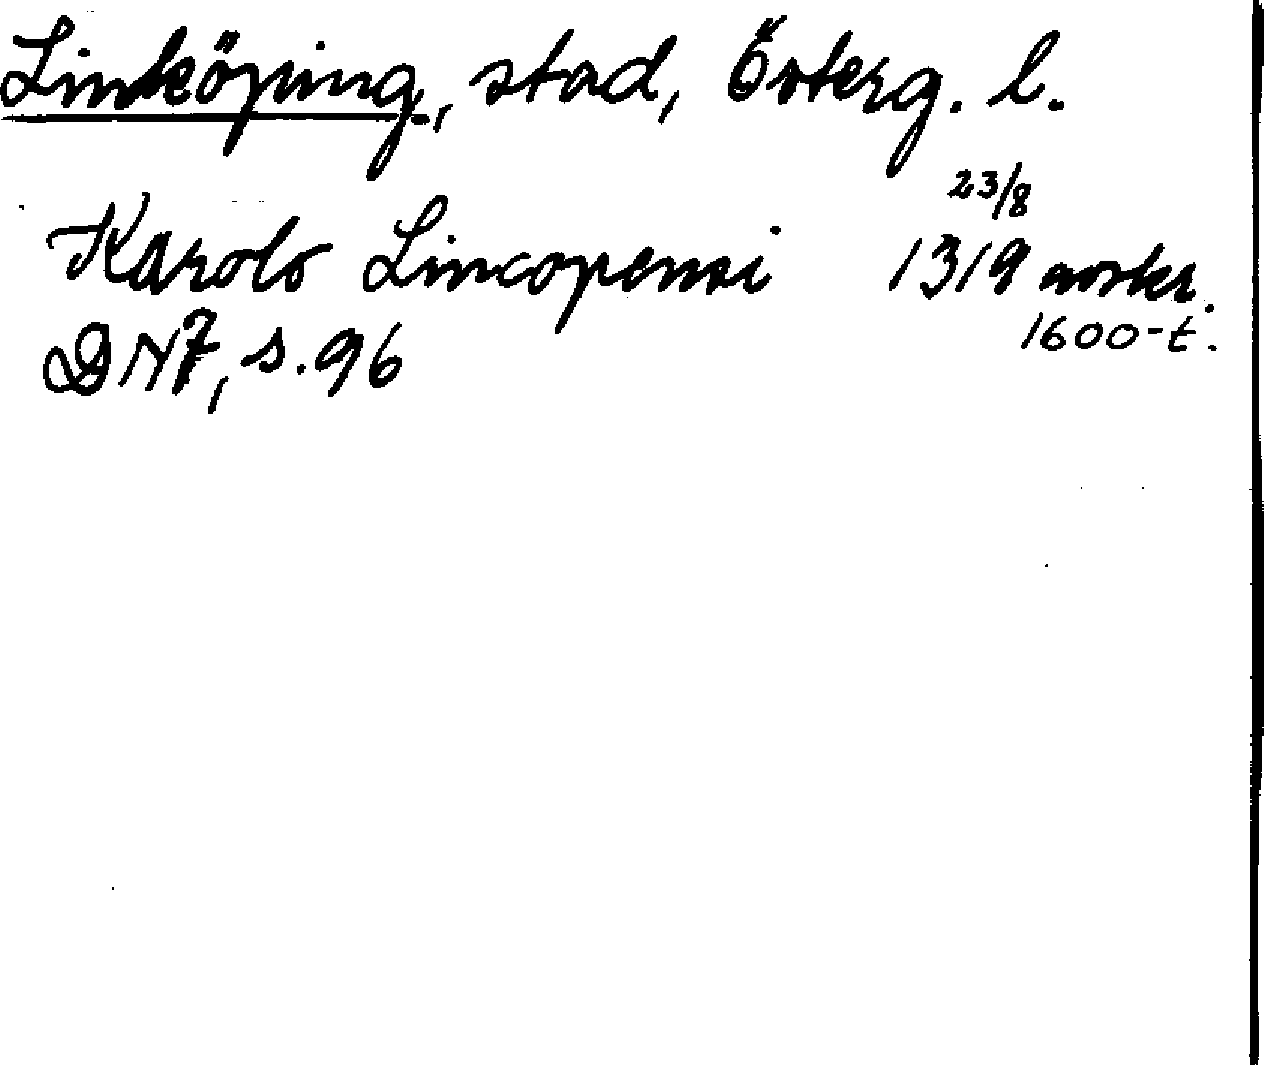 Linköping, stad, Österg. l.
23/8
Karolo Lincopensi 1319 avskr.
DN7, s. 96 1600-t.